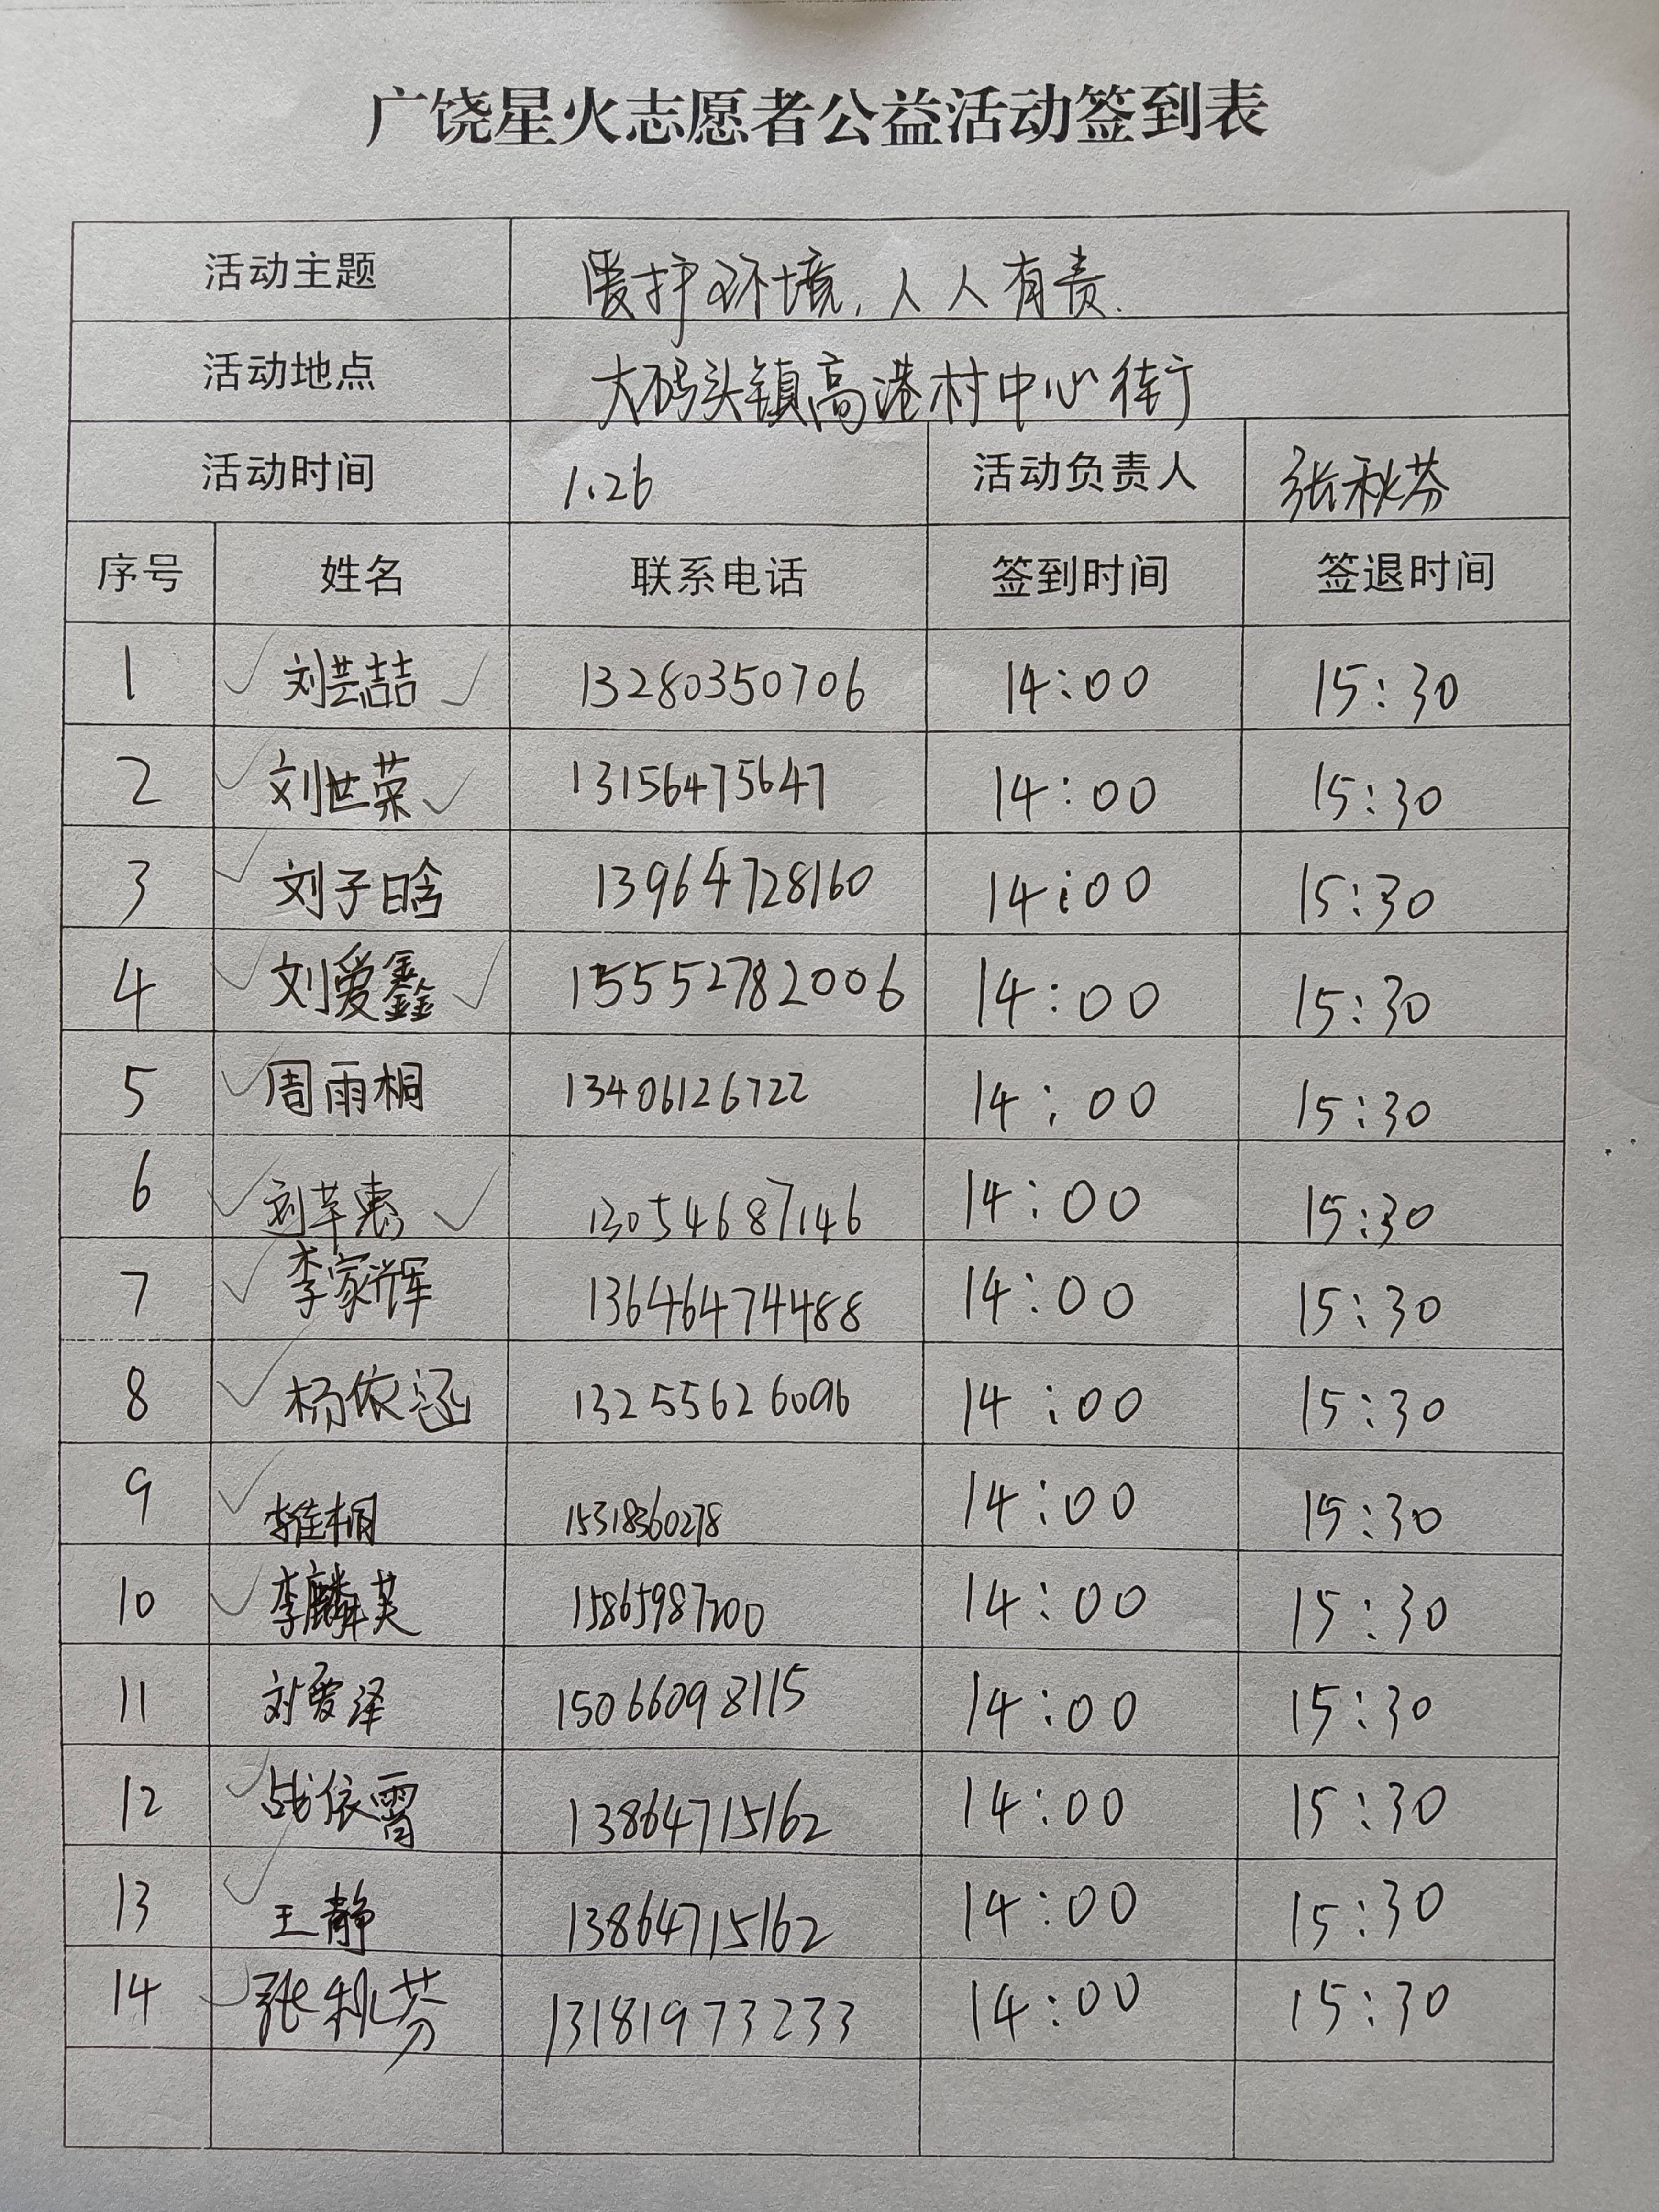 广饶星火志愿者公益活动签到表
活动主题 爱护环境，人人有责.
活动地点 大码头镇高港村中心街
活动时间 1.26 活动负责人 张秋芬
序号 姓名 联系电话 签到时间 签退时间
1 刘芸喆 13280350706 14:00 15:30
2 刘世荣 13156475647 14:00 15:30
3 刘子晗 13964728160 14:00 15:30
4 刘爱鑫 15552782006 14:00 15:30
5 周雨桐 13406126722 14:00 15:30
6 刘芊惠 13054687146 14:00 15:30
7 李家辉 13646474488 14:00 15:30
8 杨依涵 13255626096 14:00 15:30
9 15318360278 14:00 15:30
10 李麟芙 15865987200 14:00 15:30
11 刘爱泽 15066098115 14:00 15:30
12 战依霄 13864715162 14:00 15:30
13 王静 13864715162 14:00 15:30
14 张秋芬 13181973233 14:00 15:30